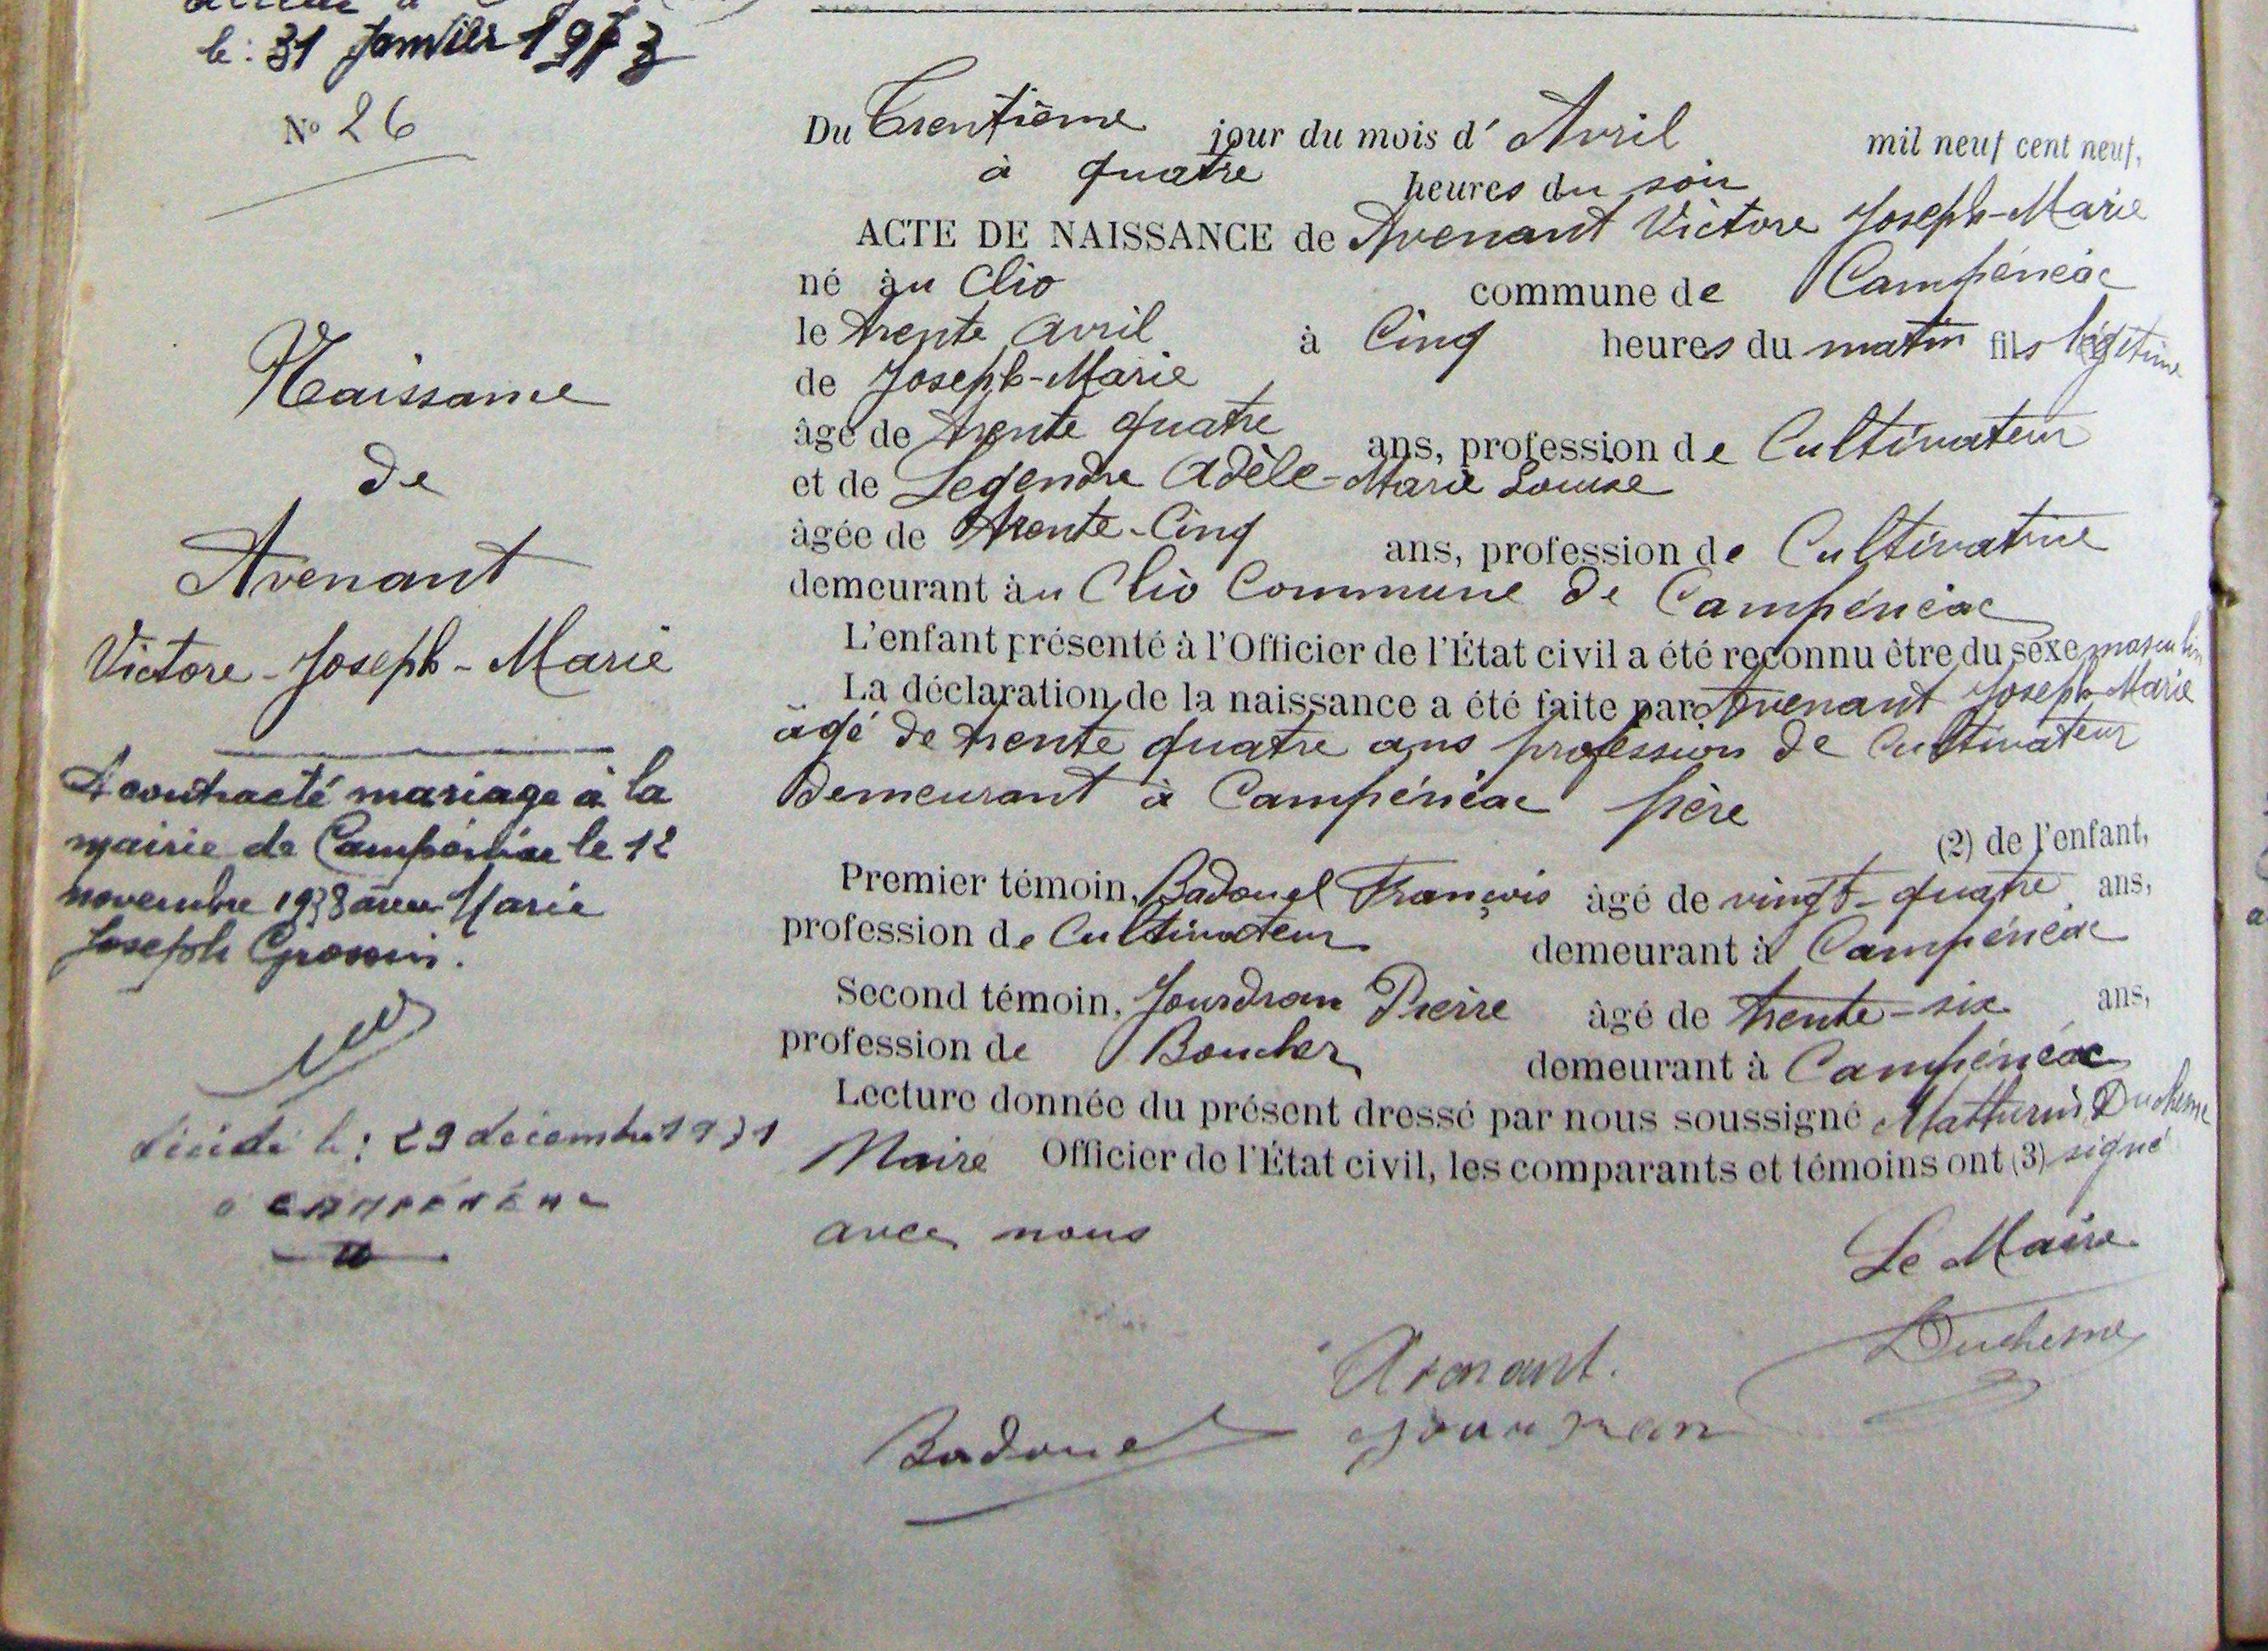 le : 31 Janvier 1973
N° 26
Naissance
de
Avenant
Victore - Joseph - Marie
A contracté mariage à la
mairie de Campénéac le 12
novembre 1938 avec Marie
Joseph
décédé le : 29 décembre 1971
à CAMPÉNÉAC
Du Trentième jour du mois d' Avril mil neuf cent neuf,
à quatre heures du soir
ACTE DE NAISSANCE de Avenant Victore Joseph-Marie
né àu Clio commune de Campénéac
le trente avril à Cinq heures du matin fils légitime
de Joseph-Marie
âgé de trente quatre ans, profession de Cultivateur
et de Legendre Adèle-Marie Louise
âgée de trente-Cinq ans, profession de Cultivatrice
demeurant àu Clio Commune de Campénéac
L'enfant présenté à l'Officier de l'État civil a été reconnu être du sexe masculin
La déclaration de la naissance a été faite par Avenant Joseph-Marie
âgé de trente quatre ans profession de Cultivateur
demeurant à Campénéac père
(2) de l'enfant,
Premier témoin, Badouel François âgé de vingt-quatre ans,
profession de Cultivateur demeurant à Campénéac
Second témoin, Jourdran Pierre âgé de trente-six ans,
profession de Boucher demeurant à Campénéac
Lecture donnée du présent dressé par nous soussigné Mathurin Duchesne
Maire Officier de l'État civil, les comparants et témoins ont (3) signé
avec nous
Le Maire
Duchesne
Avenant.
Badouel